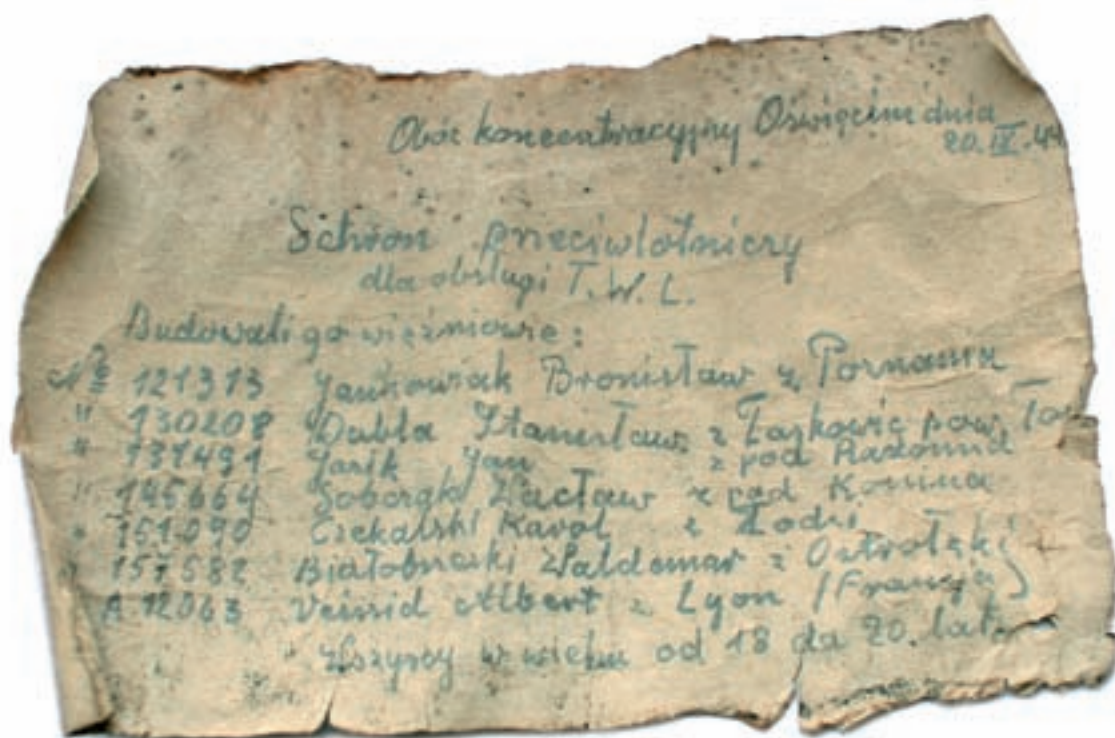 Obóz koncentracyjny Oświęcim dnia
20.IX.44
Schron przeciwlotniczy
dla obsługi T.W.L.
Budowali go więźniowie:
№ 121313 Jankowiak Bronisław z Poznania
" 130208 Dubla Stanisław z Łaskowic pow.
" 131491 Jasik Jan z pod Radomia
" 145664 Sobczak Wacław z pod Konina
" 151090 Czekalski Karol z Łodzi
" 157582 Białobrzeski Waldemar z Ostrołęki
A 12063 Veissid Albert z Lyon /Francja/
Wszyscy w wieku od 18 do 20. lat.